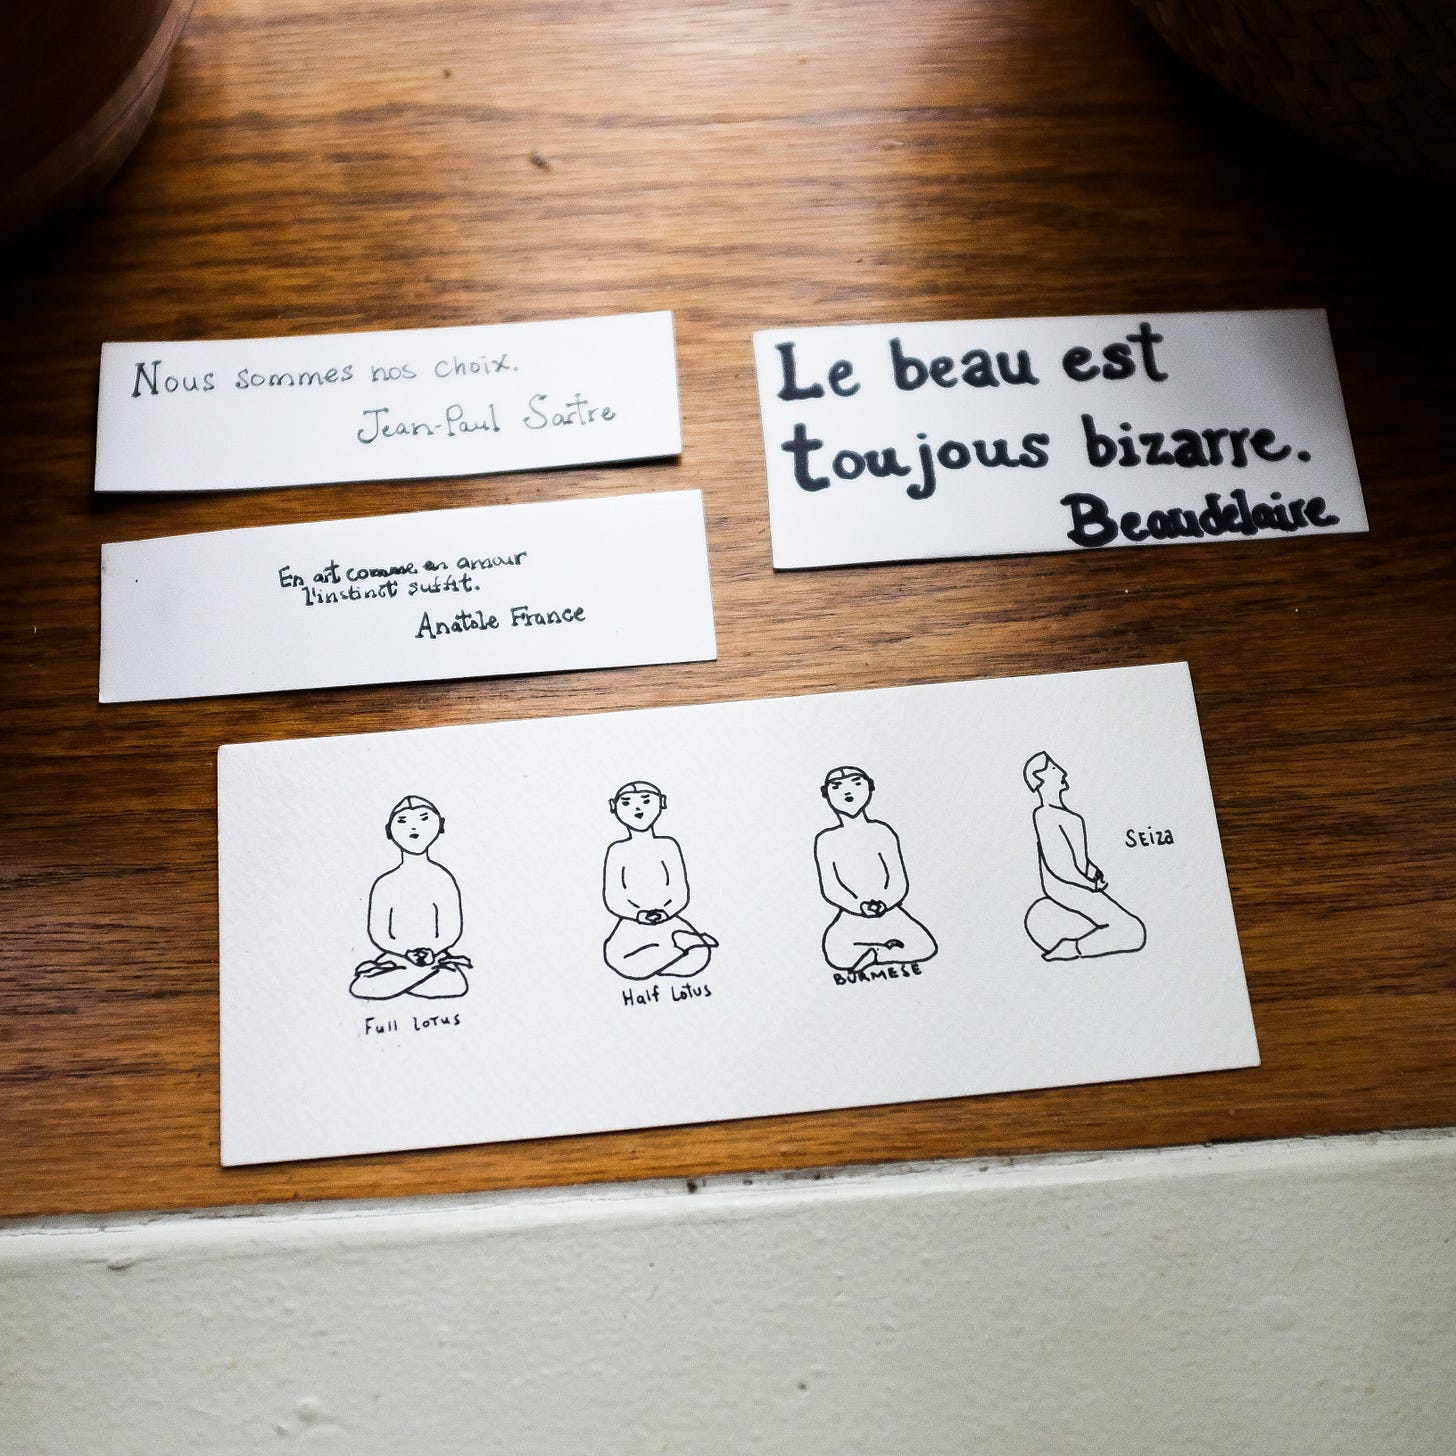 Nous sommes nos choix.
Jean-Paul Sartre
Le beau est
toujous bizarre.
Beaudelaire
En art comme en amour
l'instinct suffit.
Anatole France
Full Lotus
Half Lotus
BURMESE
SEiza